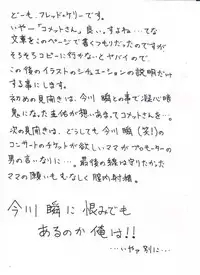 どーも、フレッド・ケリーです。
いやー「コメットさん」良い。すよね…てな
文章をこのページで書くつもりだったのですが
そろそろコピーに行かないとヤバイので、
この後のイラストのシチュエーションの説明だけ
する事にします。
初めの見開きは、今川 瞬との事で疑心暗
鬼になった圭佑が想いあまってコメットさんを…。
次の見開きは、どうしても今川 瞬（笑）の
コンサートのチケットが欲しいママがプロモーターの
男の言いなりに…。最後の線は守りたかった
ママの願いもむなしく膣内射精。
今川 瞬に恨みでも
あるのか俺は!!
…いやッ別に…